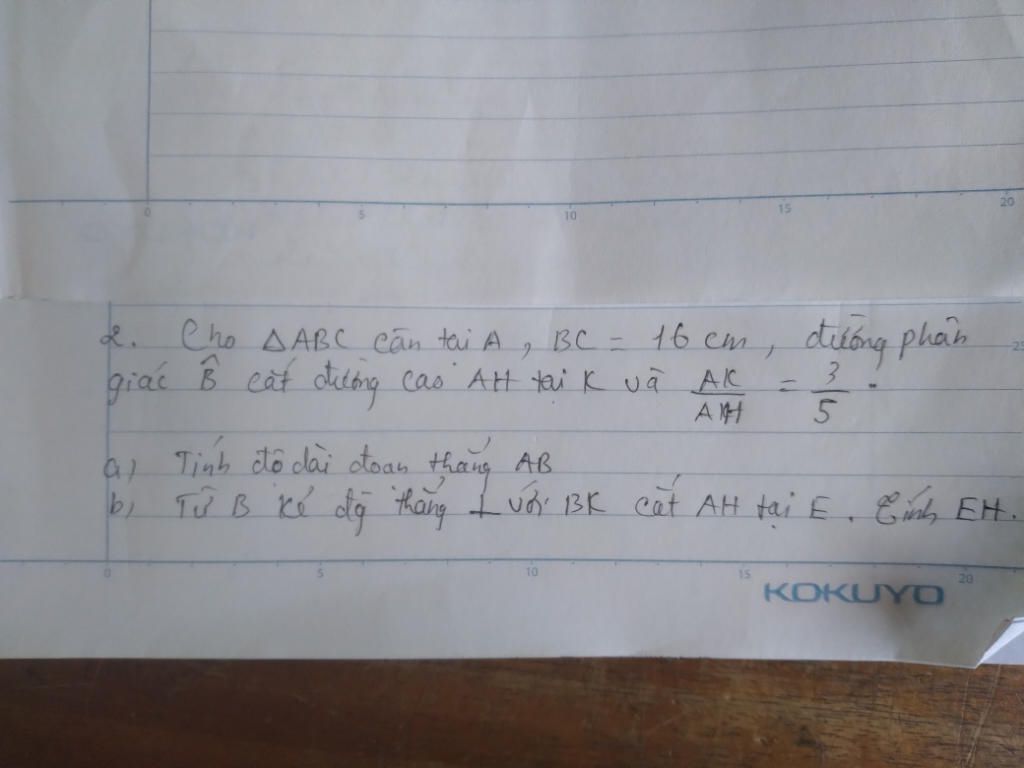 0 5 10 15 20
2. Cho ΔABC cân tại A, BC = 16 cm, đường phân
giác B̂ cắt đường cao AH tại K và AK/AH = 3/5.
25
a) Tính độ dài đoạn thẳng AB
b) Từ B kẻ đg thẳng ⊥ với BK cắt AH tại E. Tính EH.
0 5 10 15 20
KOKUYO